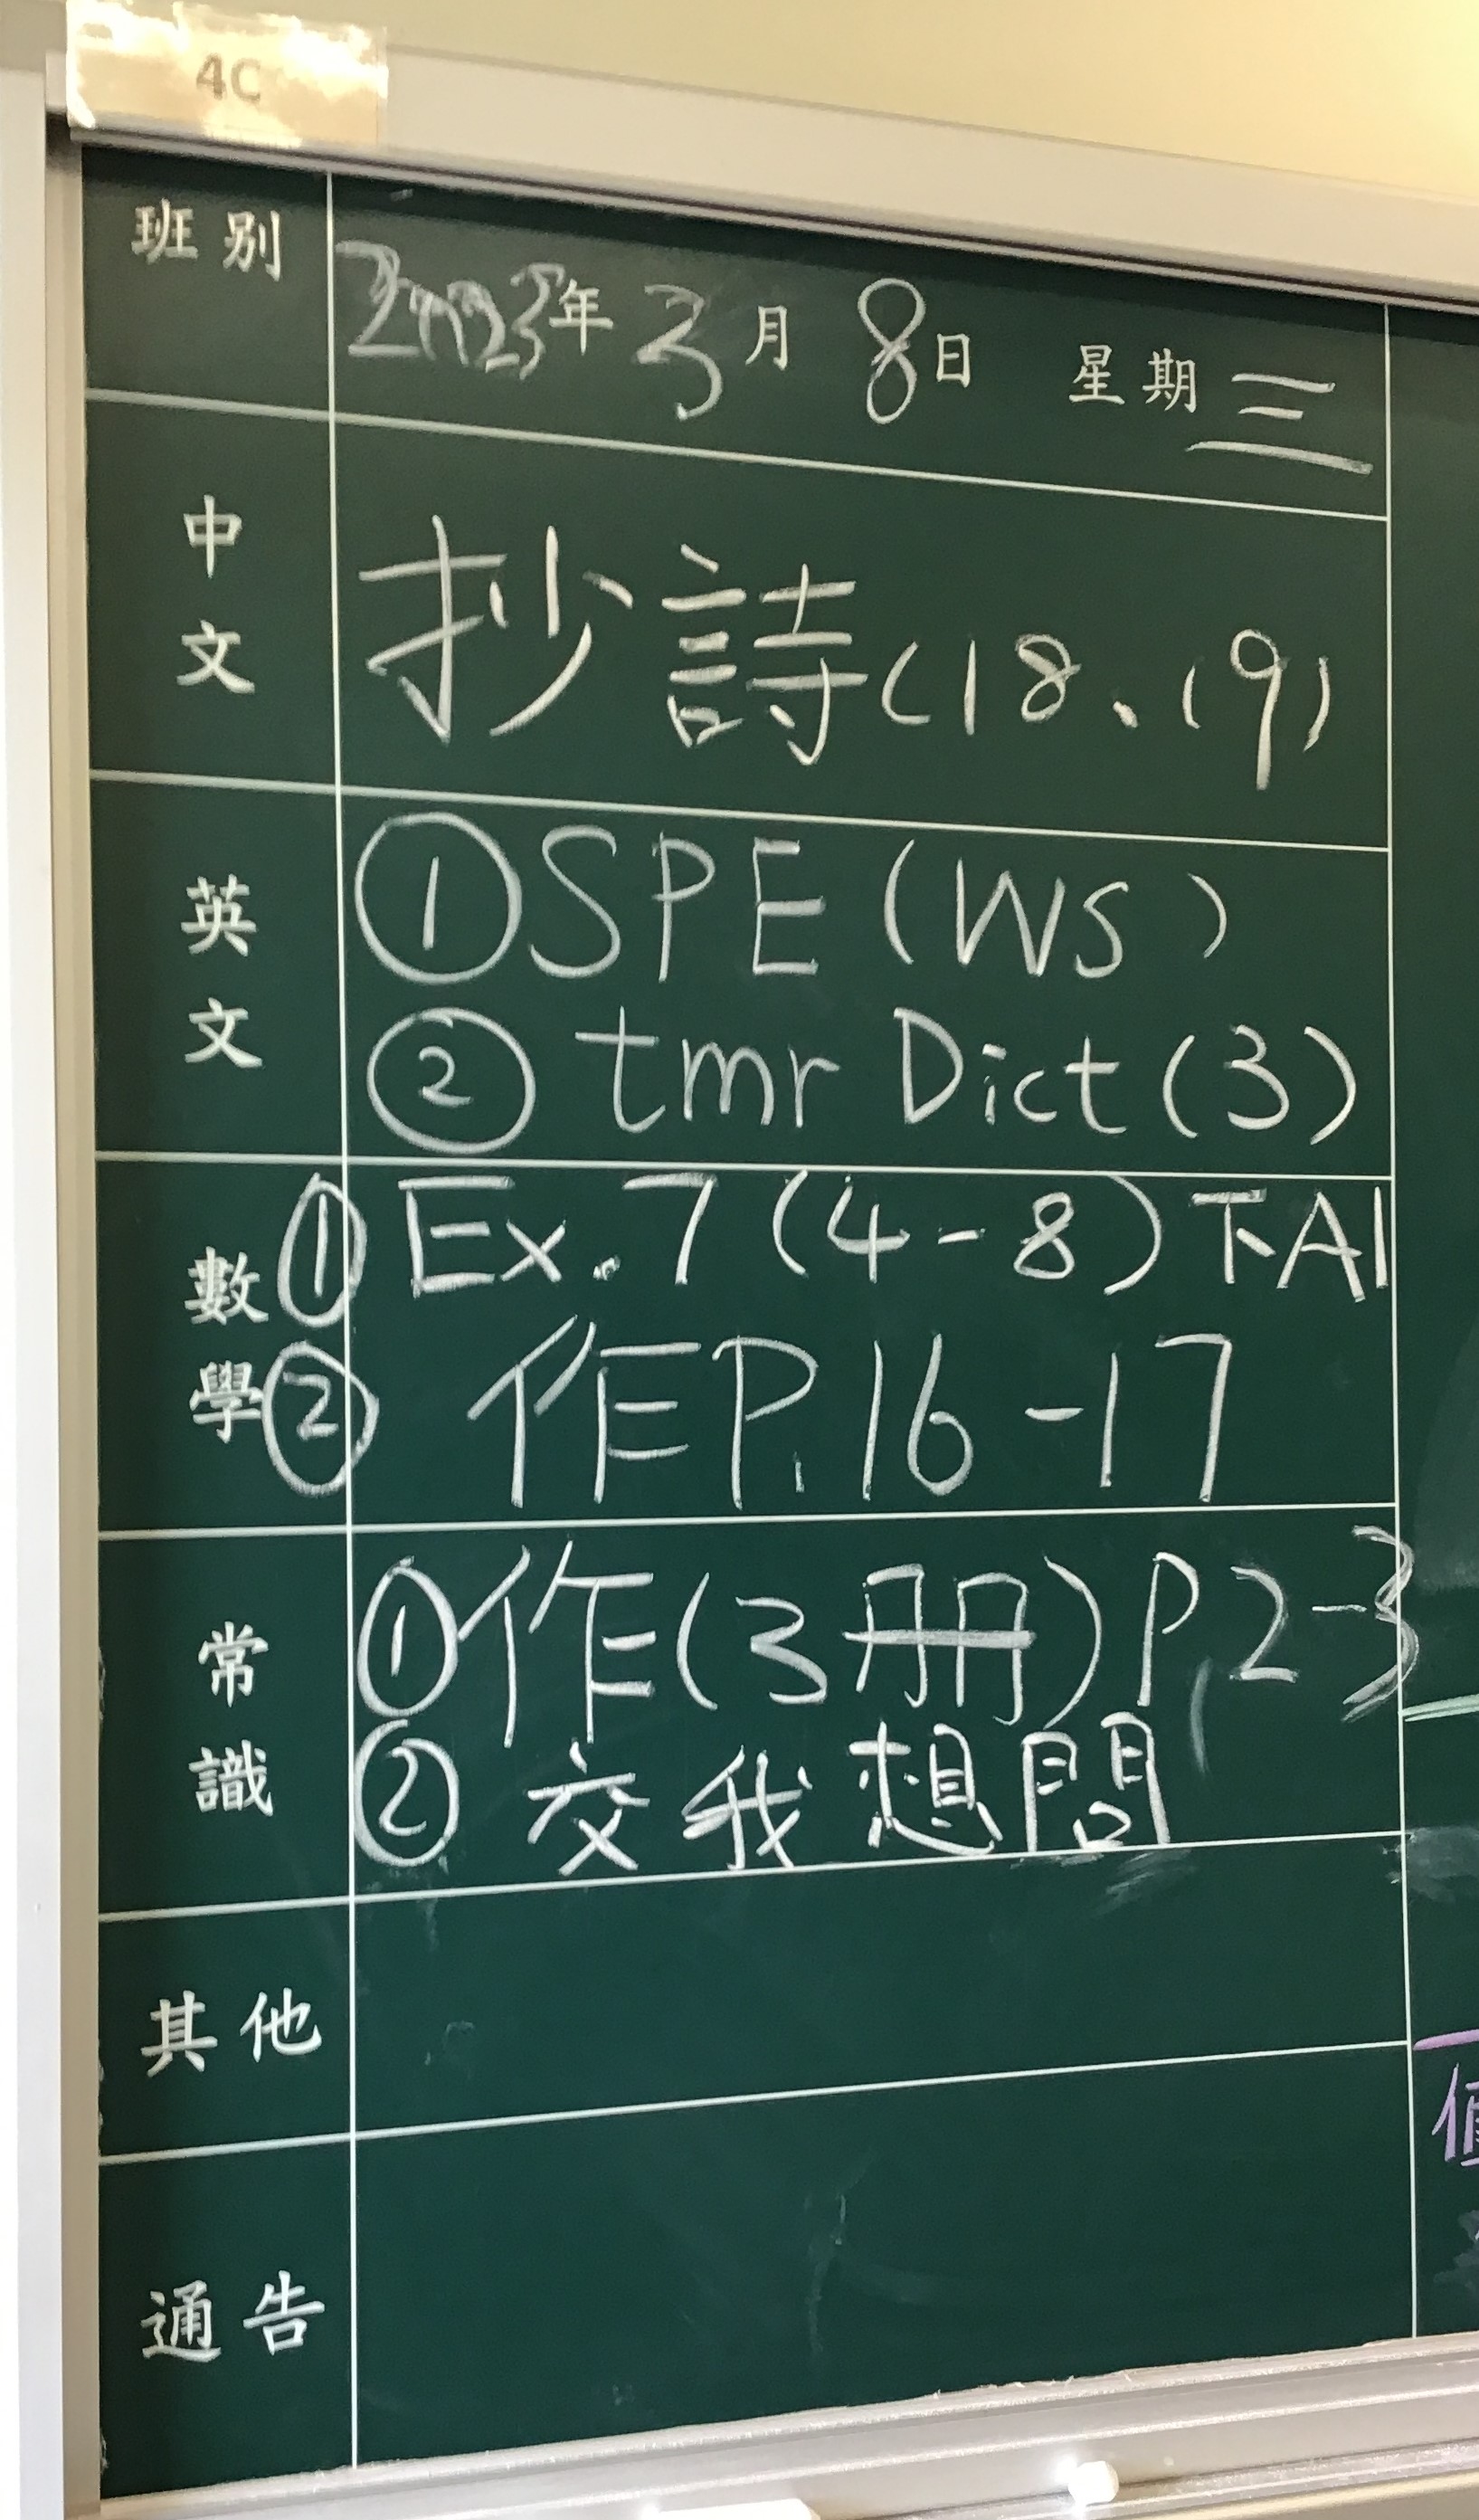 4C
班別 2023年3月8日 星期三
中文 抄詩(18、19)
英文 ①SPE(WS)
② tmr Dict(3)
數學 ① Ex.7(4-8)下A1
② 作P.16-17
常識 ①作(3冊)P.2-3
② 交我想問
其他
通告